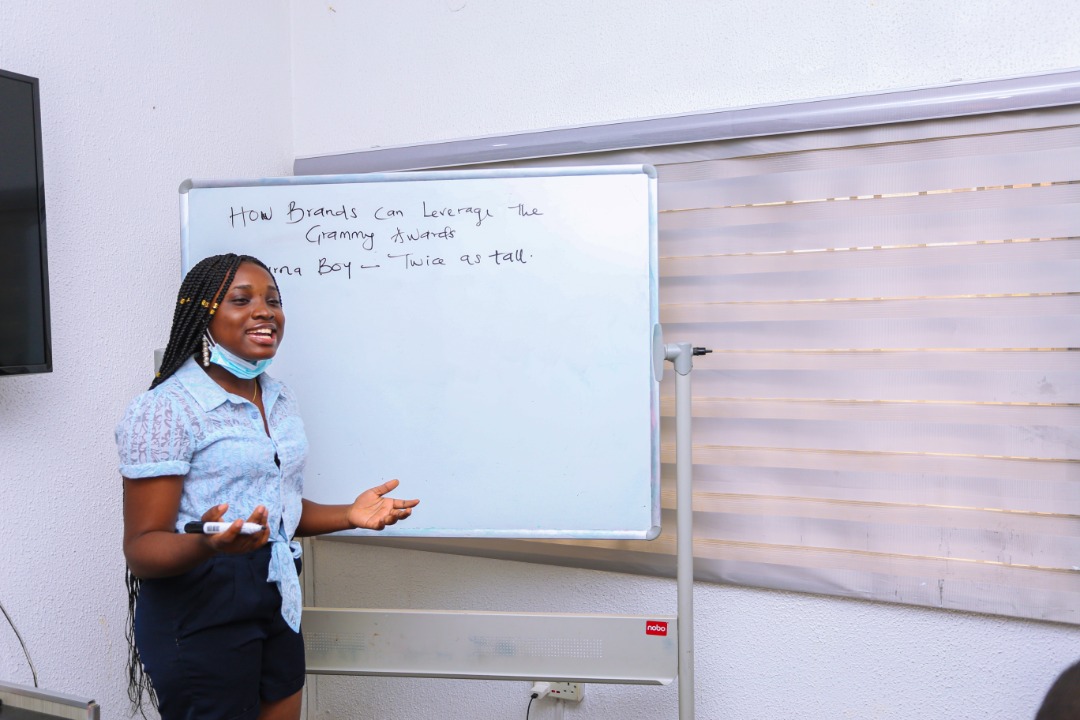 How Brands can Leverage the
Grammy Awards
urna Boy — Twice as tall.
nobo